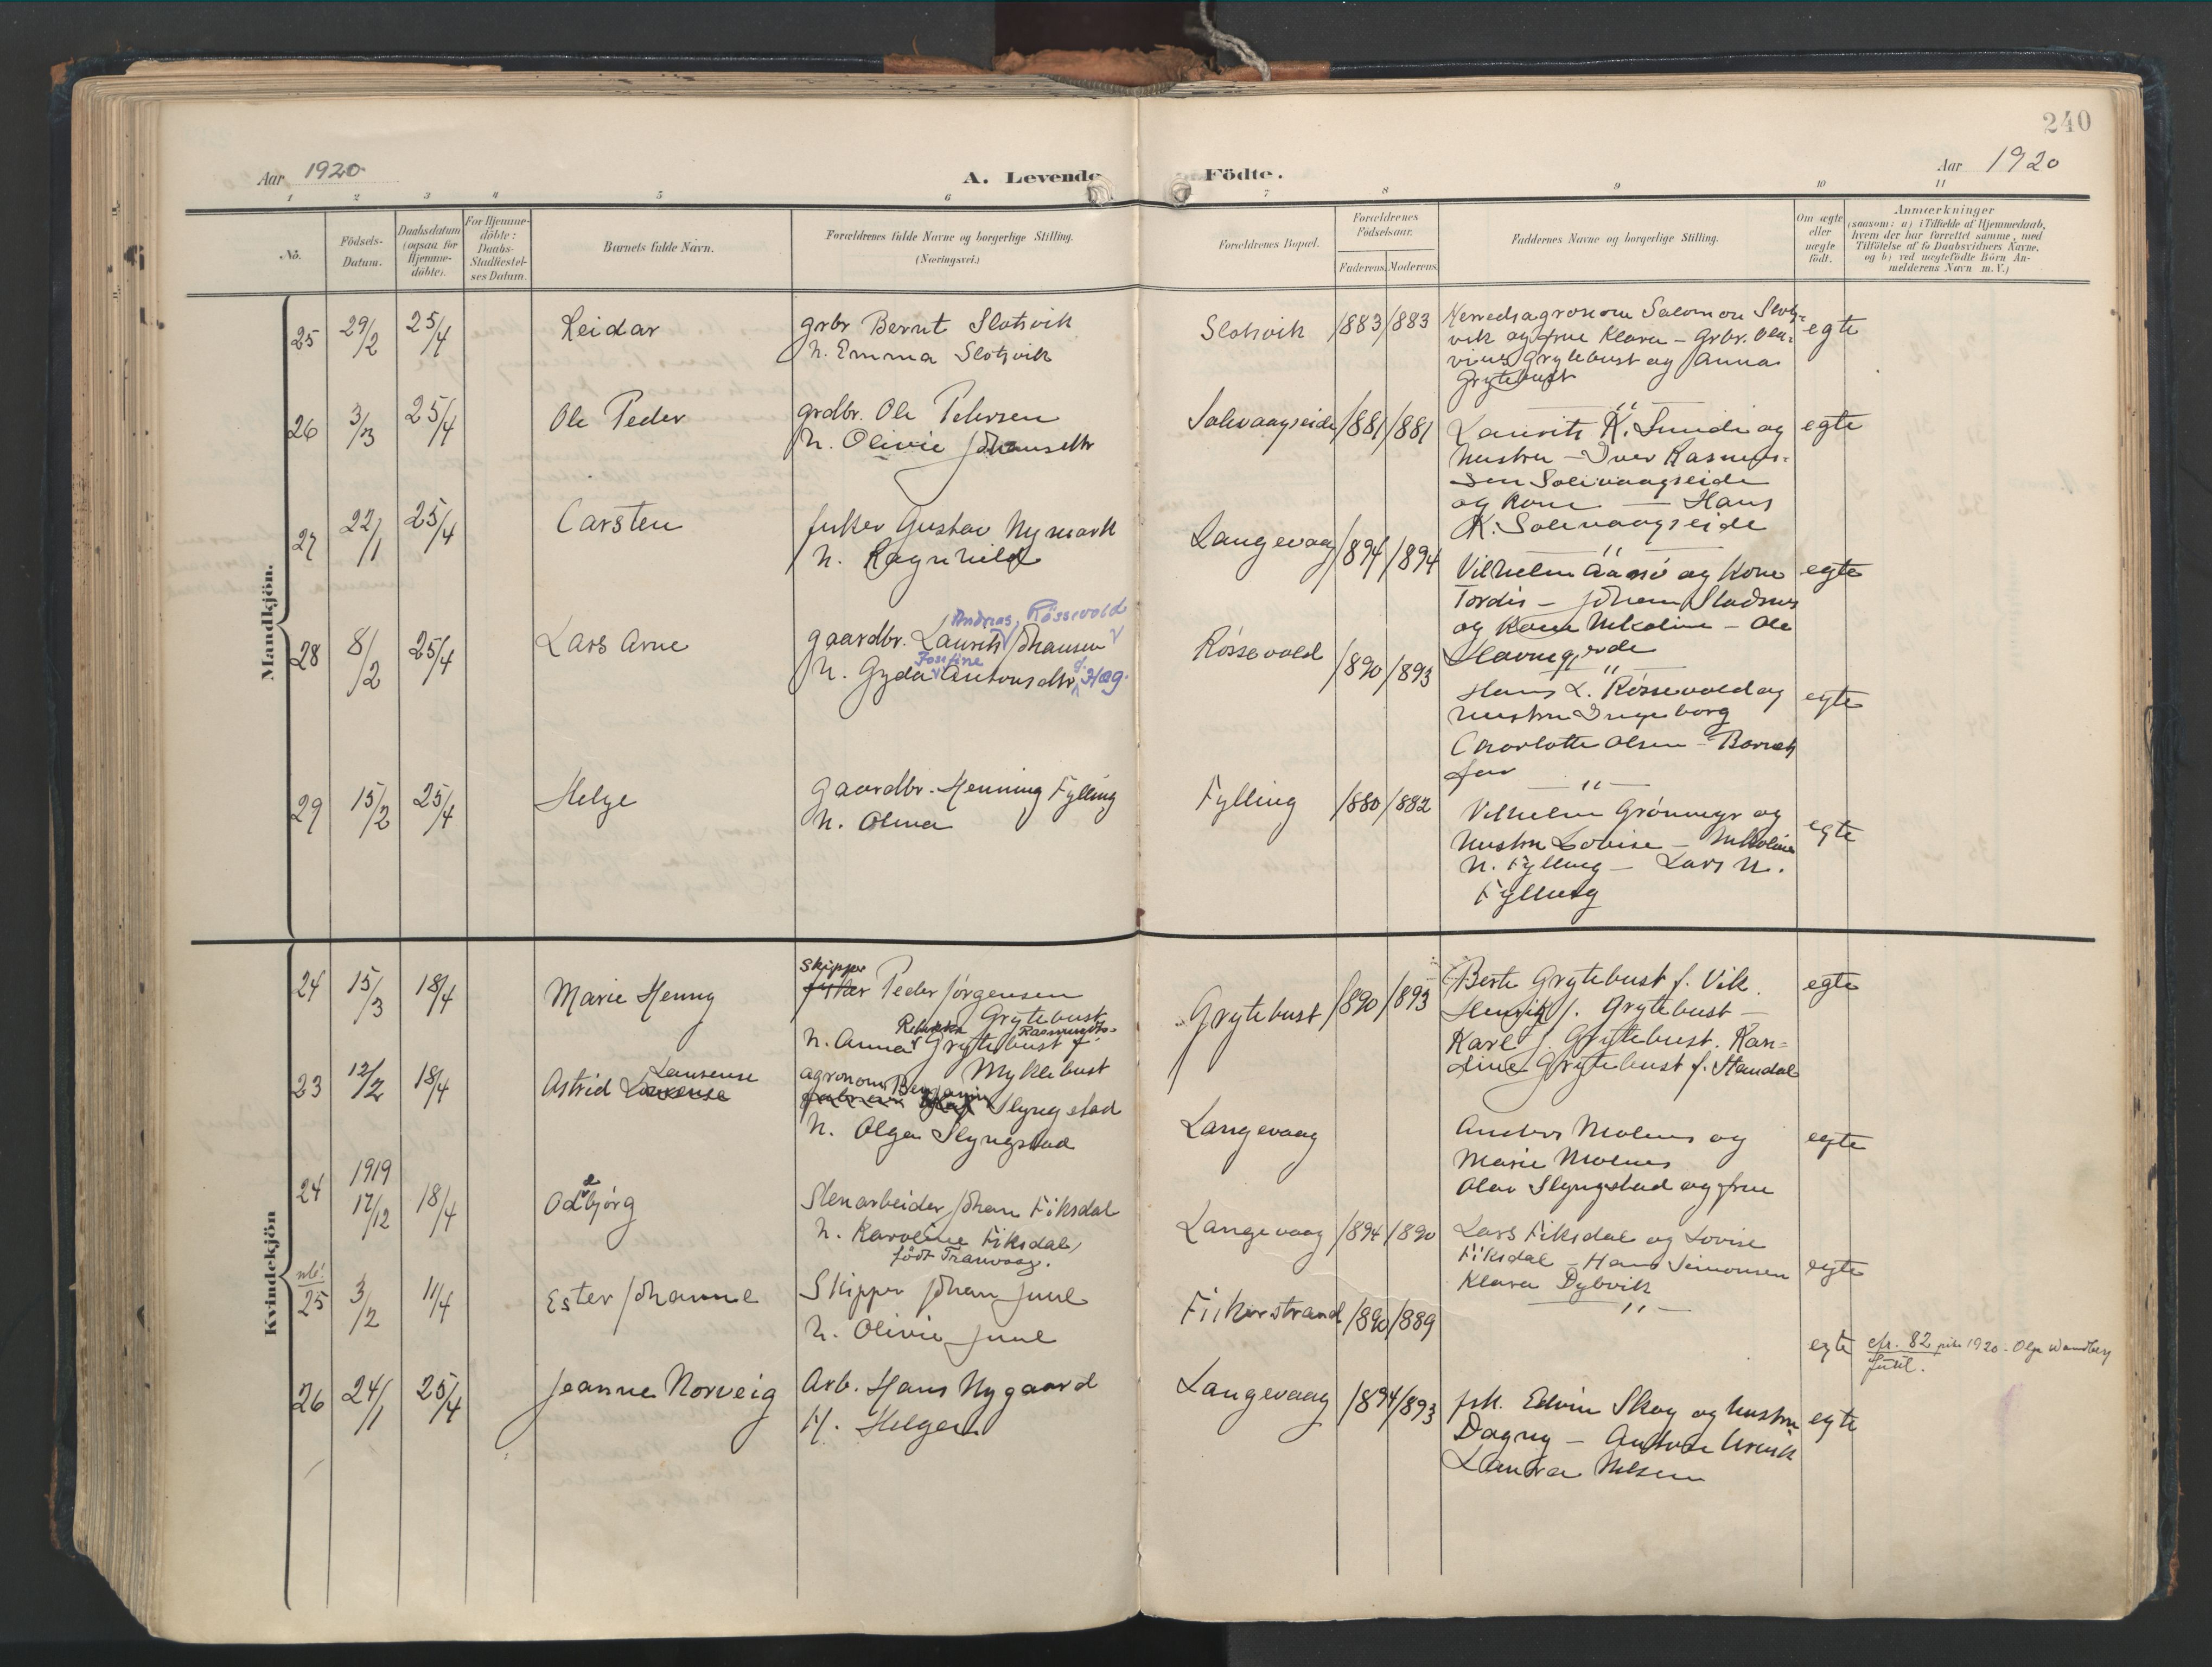 240
Aar 1920
A. Levende Födte.
Aar 1920
1 2 3 4 5 6 7 8 9 10 11
No.
Födsels-
Datum.
Daabsdatum
(ogsaa for
Hjemme-
döbte).
For Hjemme-
döbte:
Daabs-
Stadfæstel-
ses Datum.
Barnets fulde Navn.
Forældrenes fulde Navne og borgerlige Stilling.
(Næringsvei.)
Forældrenes Bopæl.
Forældrenes
Födselsaar.
Faderens. Moderens.
Faddernes Navne og borgerlige Stilling.
Om ægte
eller
uægte
födt.
Anmærkninger
(saasom: a) i Tilfælde af Hjemmedaab,
hvem der har forrettet samme, med
Tilföielse af to Daabsvidners Navne,
og b) ved uægtefödte Börn An-
melderens Navn m. V.)
Mandkjön.
25 29/2 25/4 Reidar
grbr Bernt Slotsvik
h. Emma Slotsvik
Slotsvik 1883 1883
Herredsagronom Salomon Slots-
vik og frue Klara - Grbr. Ola-
vius Grytebust og Anna
Grytebust
egte
26 3/3 25/4 Ole Peder
grdbr. Ole Petersen
h. Olivie Johansdtr
Solevaagseide 1881 1881
Laurits K. Sunde og
hustru - Iver Rasmus-
sen Solevaagseide
og kone - Hans
K. Solevaagseide
egte
27 22/1 25/4 Carsten
fisker Gustav Nymark
h. Ragnhild
Langevaag 1894 1894
Vilhelm Aasø og kone
Tordis - Johan Stadsnes
og kone Nikoline - Ole
Havnegjerde
egte
28 8/2 25/4 Lars Arne
Andreas, Røssevold
gaardbr. Laurits Johansen
Josefine
h. Gyda Antonsdtr, f. Hag.
Røssevold 1890 1893
Hans L. Røssevold og
hustru Ingeborg
Charlotte Olsen - Barnets
far
egte
29 15/2 25/4 Helge
gaardbr. Henning Fylling
h. Olina
Fylling 1880 1882
Vilhelm Grønmyr og
hustru Lovise - Nikoline
N. Fylling - Lars N.
Fylling
egte
Kvindekjön
24 15/3 18/4 Marie Henny
Skipper
fisker Peder Jørgensen
Grytebust
Rebekka Rasmusdtr.
h. Anna Grytebust f.
Myklebust
Grytebust 1890 1893
Berte Grytebust f. Vik.
Henrik J. Grytebust -
Karl J. Grytebust. Kan-
dine Grytebust f. Standal
egte
23 12/2 18/4
Laurense
Astrid Laurense
agronom Benjamin
Slyngstad
h. Olga Slyngstad
Langevaag
Anders Molnes og
Marie Molnes
Olav Slyngstad og frue
egte
24
1919
17/12 18/4 Oddbjørg
Stenarbeider Johan Fiksdal
h. Karoline Fiksdal,
født Tranvaag.
Langevaag 1894 1890
Lars Fiksdal og Lovise
Fiksdal - Hans Simonsen
Klara Dybvik
egte
nb!
25 3/2 11/4 Ester Johanne
Skipper Johan Juul
h. Olivie Juul
Fiskerstrand 1890 1889
egte
cfr. 82 piker 1920 - Olga Wandberg
Juul.
26 24/1 25/4 Jeanne Norveig
Arb. Hans Nygaard
H. Helga
Langevaag 1894 1893
fsk. Edvin Skog og hustru
Dagny - Anton Urvik
Laura Nilsen
egte